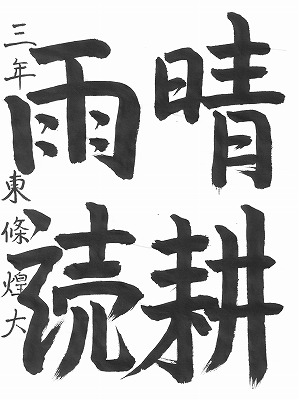 晴耕
雨読
三年 東條煌大